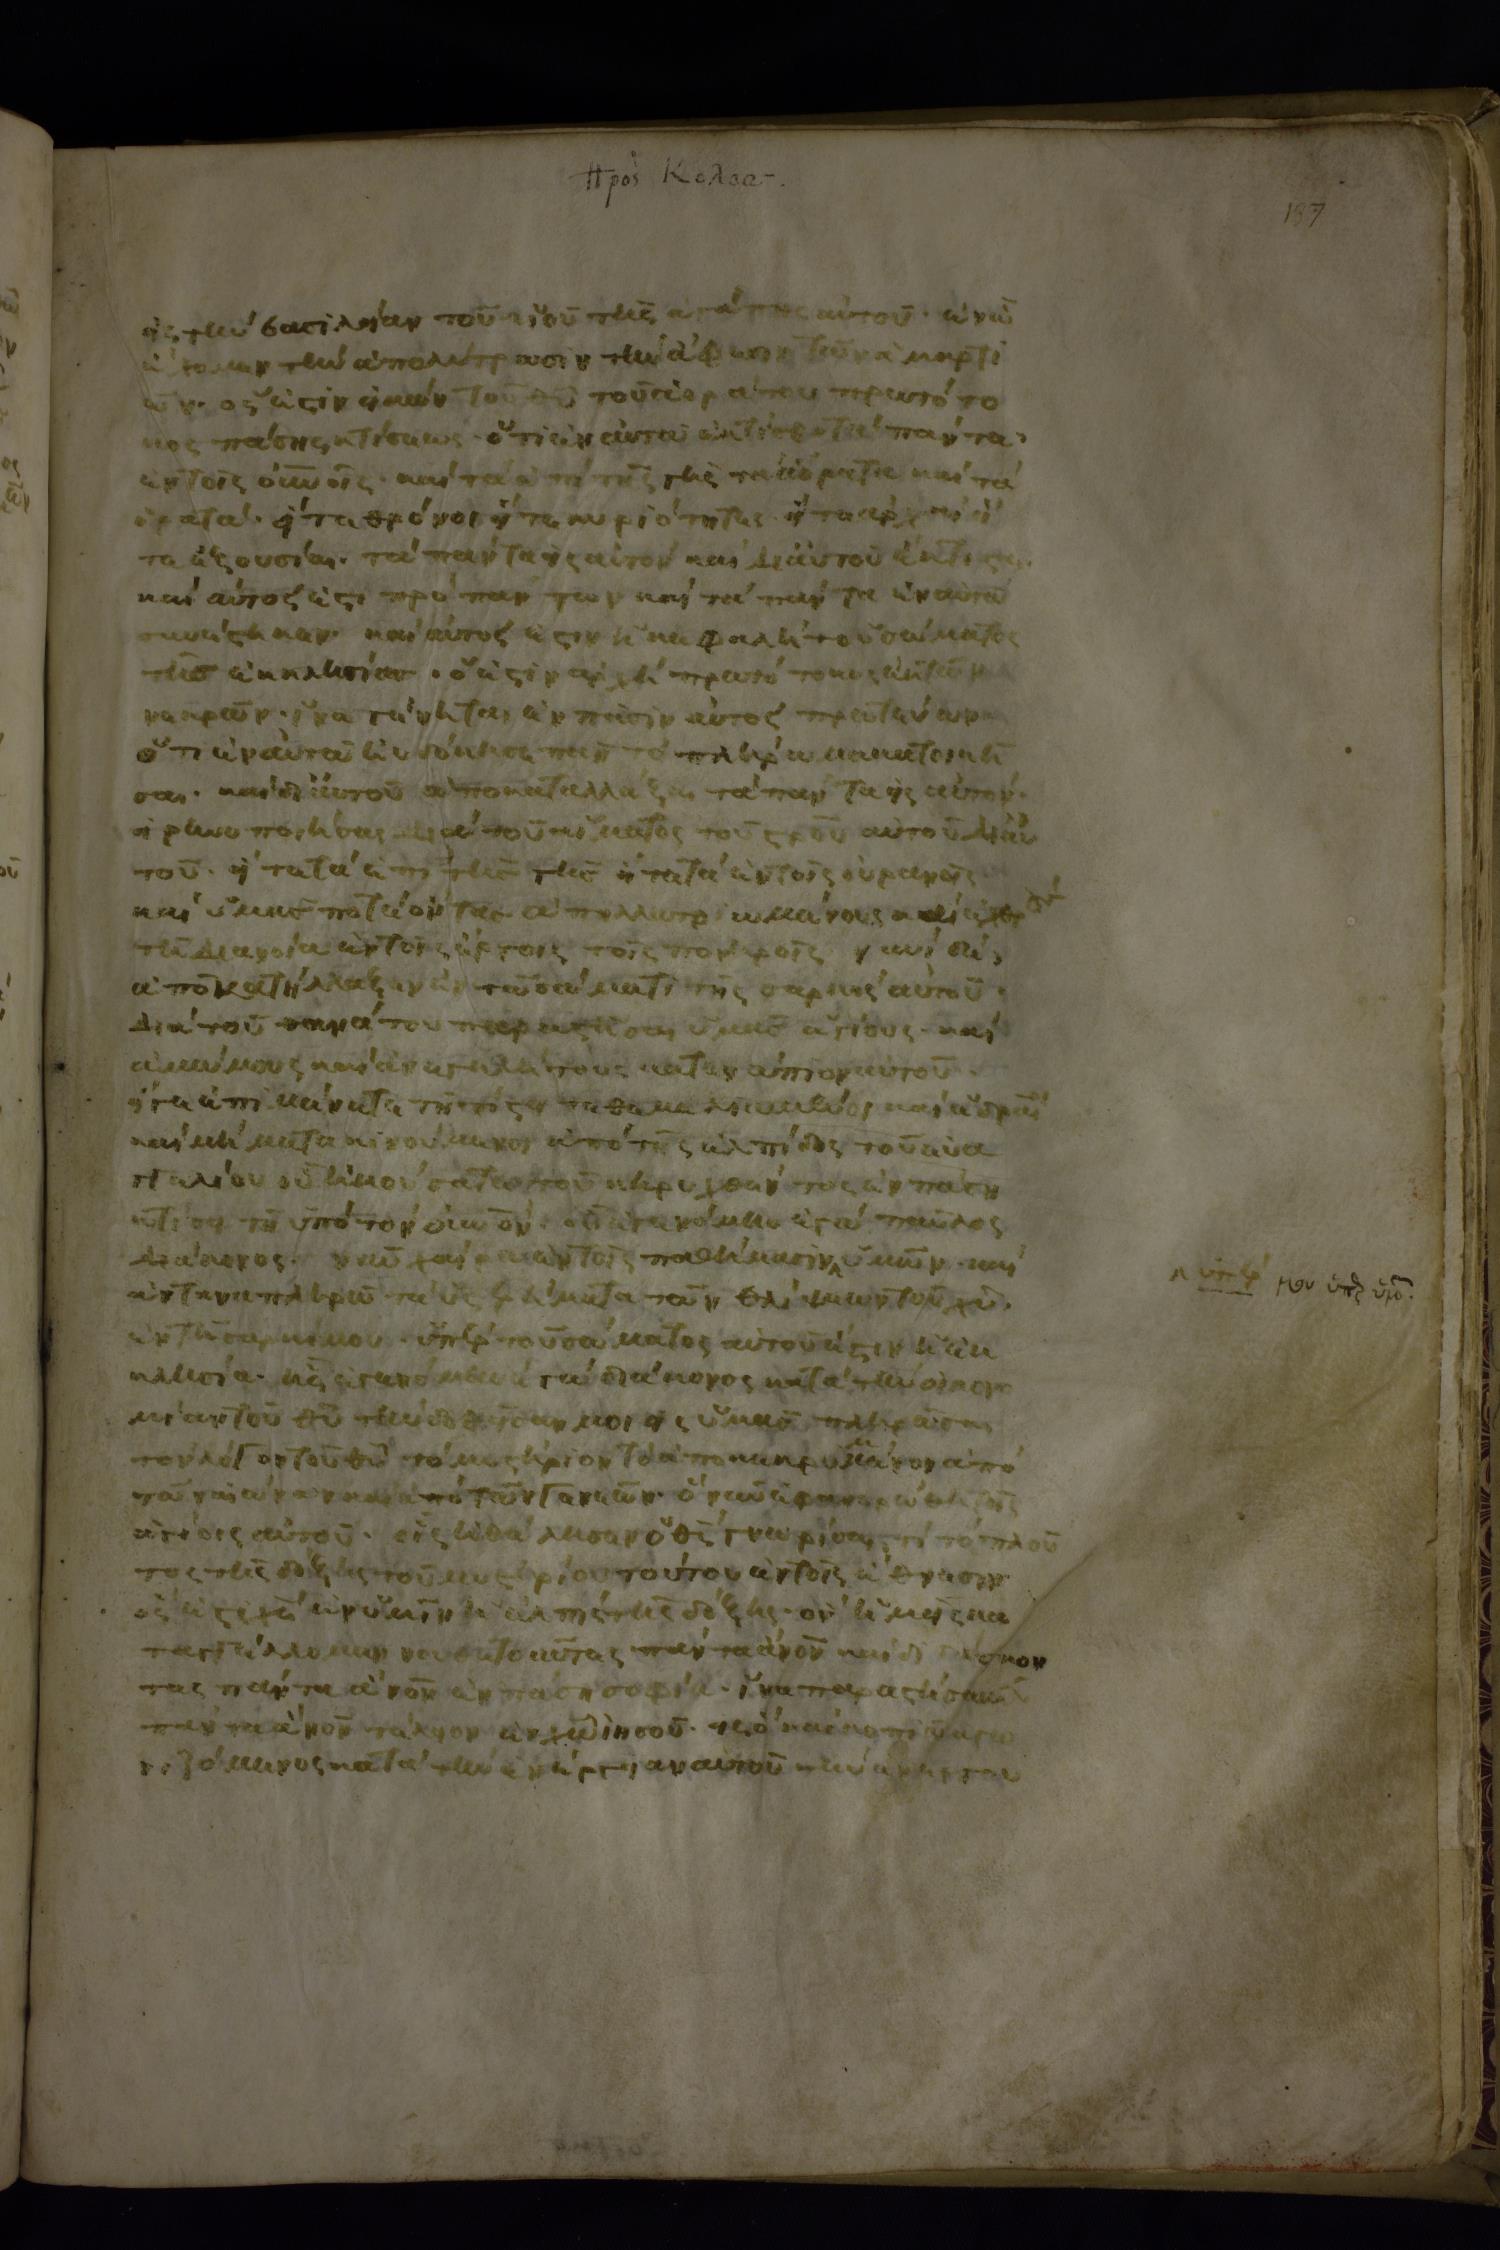 Πρὸς Κολοσ-
187
εἰς τὴν βασιλείαν τοῦ υἱοῦ τῆς ἀγάπης αὐτοῦ· ἐν ᾧ
ἔχομεν τὴν ἀπολύτρωσιν τὴν ἄφεσιν τῶν ἁμαρτι
ῶν· ὅς ἐστιν εἰκὼν τοῦ θῦ τοῦ ἀοράτου πρωτότο
κος πάσης κτίσεως· ὅτι ἐν αὐτῶ ἐκτίσθη τὰ πάντα·
ἐν τοῖς οὐνοῖς· καὶ τὰ ἐπὶ τῆς γῆς τὰ ἀόρατα καὶ τὰ
ὁρατά· εἴτε θρόνοι εἴτε κυριότητες· εἴτε ἀρχαὶ εἴ
τε ἐξουσίαι· τὰ πάντα εἰς αὐτὸν καὶ δι' αὐτοῦ ἔκτισται·
καὶ αὐτός ἐστι πρὸ πάντων καὶ τὰ πάντα ἐν αὐτῶ
συνέστηκεν· καὶ αὐτός ἐστιν ἡ κεφαλὴ τοῦ σώματος
τῆς ἐκκλησίας· ὅ ἐστιν ἀρχὴ πρωτότοκος ἐκ τῶν
νεκρῶν· ἵνα γένηται ἐν πᾶσιν αὐτὸς πρωτεύων
ὅτι ἐν αὐτῶ ηὐδόκησε πᾶν τὸ πλήρωμα κατοικῆ
σαι· καὶ δι' αὐτοῦ ἀποκαταλλάξαι τὰ πάντα εἰς αὐτόν·
εἰρηνοποιήσας διὰ τοῦ αἵματος τοῦ σροῦ αὐτοῦ δι' αὐ
τοῦ· εἴτε τὰ ἐπὶ τῆς γῆς εἴτε τὰ ἐν τοῖς οὐρανοῖς
καὶ ὑμᾶς ποτὲ ὄντας ἀπηλλοτριωμένους καὶ ἐχθροὺς
τῆ διανοία ἐν τοῖς ἔργοις τοῖς πονηροῖς νυνὶ δὲ·
ἀποκατήλλαξεν ἐν τῶ σώματι τῆς σαρκὸς αὐτοῦ·
διὰ τοῦ θανάτου παραστῆσαι ὑμᾶς ἁγίους· καὶ
ἀμώμους καὶ ἀνεγκλήτους κατενώπιον αὐτοῦ·
εἴγε ἐπιμένετε τῆ πίστει τεθεμελιωμένοι καὶ ἑδραῖοι
καὶ μὴ μετακινούμενοι ἀπὸ τῆς ἐλπίδος τοῦ εὐα
γγελίου οὗ ἠκούσατε· τοῦ κηρυχθέντος ἐν πάση
κτίσει τῆ ὑπὸ τὸν οὐνόν· οὗ ἐγενόμην ἐγὼ παῦλος
διάκονος· νῦν χαίρω ἐν τοῖς παθήμασιν ὑμῶν· καὶ
ἀνταναπληρῶ τὰ ὑστερήματα τῶν θλίψεων τοῦ χῦ·
ἐν τῆ σαρκί μου· ὑπὲρ τοῦ σώματος αὐτοῦ ὅ ἐστιν ἡ ἐκ
κλησία· ἧς ἐγενόμην ἐγὼ διάκονος κατὰ τὴν οἰκονο
μίαν τοῦ θῦ τὴν δοθεῖσαν μοι εἰς ὑμᾶς πληρῶσαι
τὸν λόγον τοῦ θῦ τὸ μυστήριον τὸ ἀποκεκρυμμένον ἀπὸ
τῶν αἰώνων καὶ ἀπὸ τῶν γενεῶν· ὃ νῦν ἐφανερώθη τοῖς
ἁγίοις αὐτοῦ· οἷς ἠθέλησεν ὁ θς γνωρίσαι τί τὸ πλοῦ
τος τῆς δόξης τοῦ μυστηρίου τούτου ἐν τοῖς ἔθνεσιν
ὅς ἐστι χς ἐν ὑμῖν ἡ ἐλπὶς τῆς δόξης· ὃν ἡμεῖς κα
ταγγέλλομεν νουθετοῦντες πάντα ἄνον καὶ διδάσκον
τες πάντα ἄνον ἐν πάση σοφία· ἵνα παραστήσωμεν
πάντα ἄνον τέλειον ἐν χῶ ἰησοῦ· εἰς ὃ καὶ κοπιῶ ἀγω
νιζόμενος κατὰ τὴν ἐνέργειαν αὐτοῦ τὴν ἐνεργου
ὑπὲρ μου ὑπὲρ ὑμῶ.